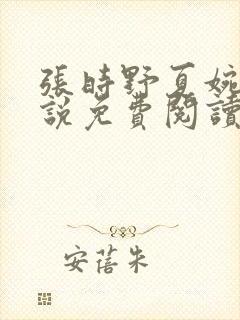 張時野夏婉
說免費閱讀
安蓓朱